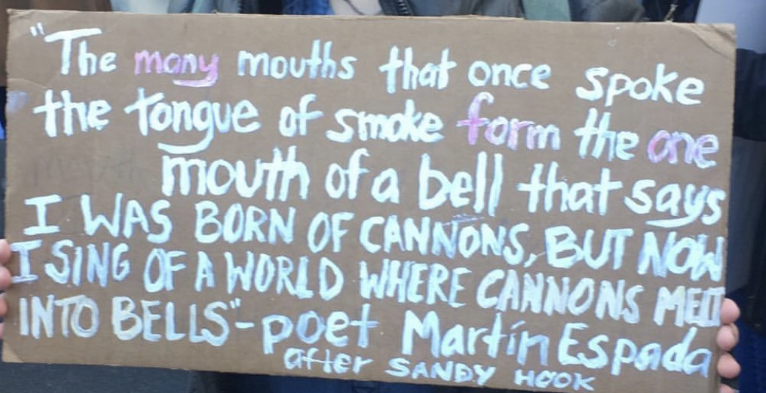 "The many mouths that once spoke
the tongue of smoke form the one
mouth of a bell that says
I WAS BORN OF CANNONS, BUT NOW
I SING OF A WORLD WHERE CANNONS MELT
INTO BELLS" - poet Martín Espada
after SANDY HOOK